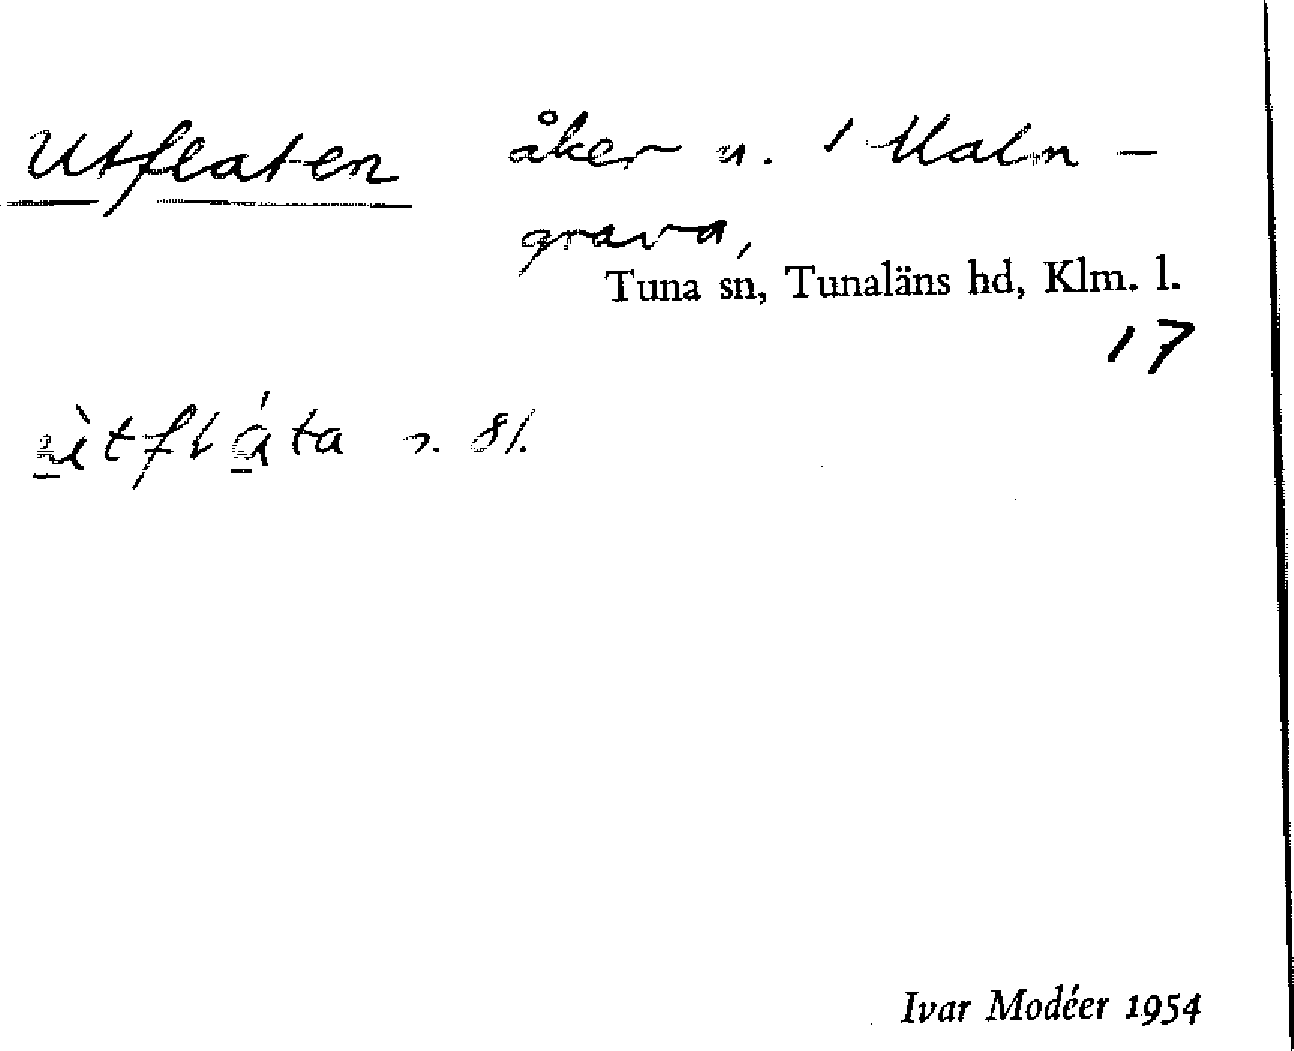 Utflaten åker n. 1 Maln-
grava,
Tuna sn, Tunaläns hd, Klm. l.
17
ùtfláta
Ivar Modéer 1954